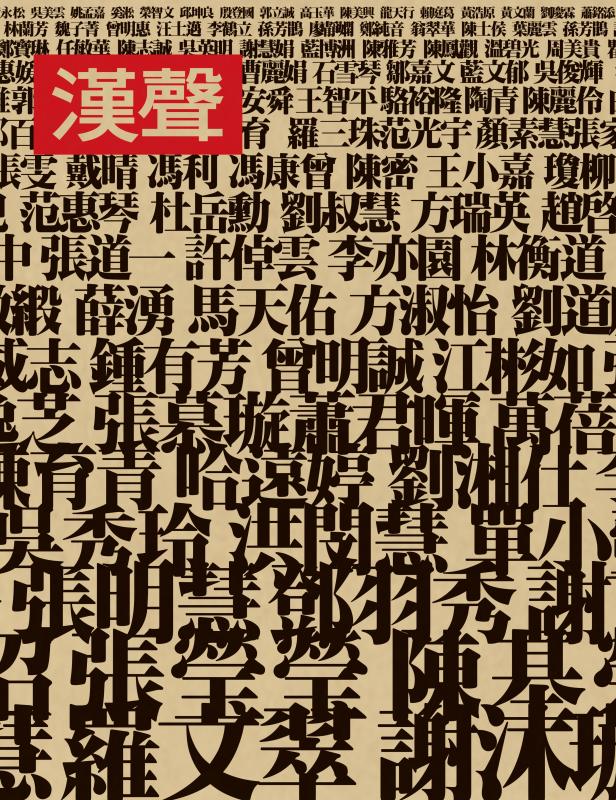 永松 吳美雲 姚孟嘉 奚淞 榮智文 邱坤良 殷登國 郭立誠 高玉華 陳美興 龍天行 賴庭葛 黃浩原 黃文蘭 劉慶霖
林蘭芳 魏子菁 曾明惠 汪士邁 李鶴立 孫芳鵑 鄭純音 翁翠華 陳士侯 葉麗雲 孫芳鵑
鄭寶琳 任敏華 陳志誠 吳英明 謝慧勳 藍博洲 陳雅芳 陳鳳觀 溫碧光 周美貴
惠 漢聲 曹麗娟 石雪琴 鄒嘉文 藍文郁 吳俊輝
郭 安舜 王智平 駱裕隆 陶青 陳麗伶
百 育 羅三珠 范光宇 顏素慧 張
張雯 戴晴 馮利 馮康曾 陳密 王小嘉 瓊柳
范惠琴 杜岳勳 劉叔慧 方瑞英 趙啓
中 張道一 許倬雲 李亦園 林衡道
緞 薛湧 馬天佑 方淑怡 劉道
志 鍾有芳 曾明誠 江彬如
芝 張慕璇 蕭君暉 萬蓓
陳育青 哈遠婷 劉湘仕
吳秀玲 汪閔慧 單小
張明慧 鄧羽秀 謝
召 張瑩瑩 陳其
慧 羅文翠 謝沫